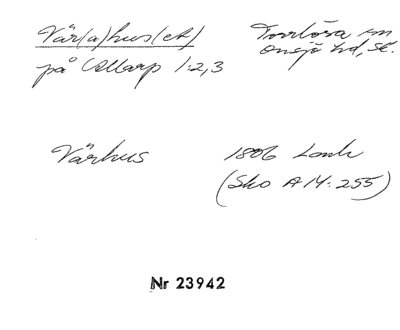 Vår(a)hus(et)
på Allarp 1:2,3
Torrlösa sn
Onsjö hd, Sk.
Vårhus
1806 Lantm
(Sko A 14: 255)
Nr 23942